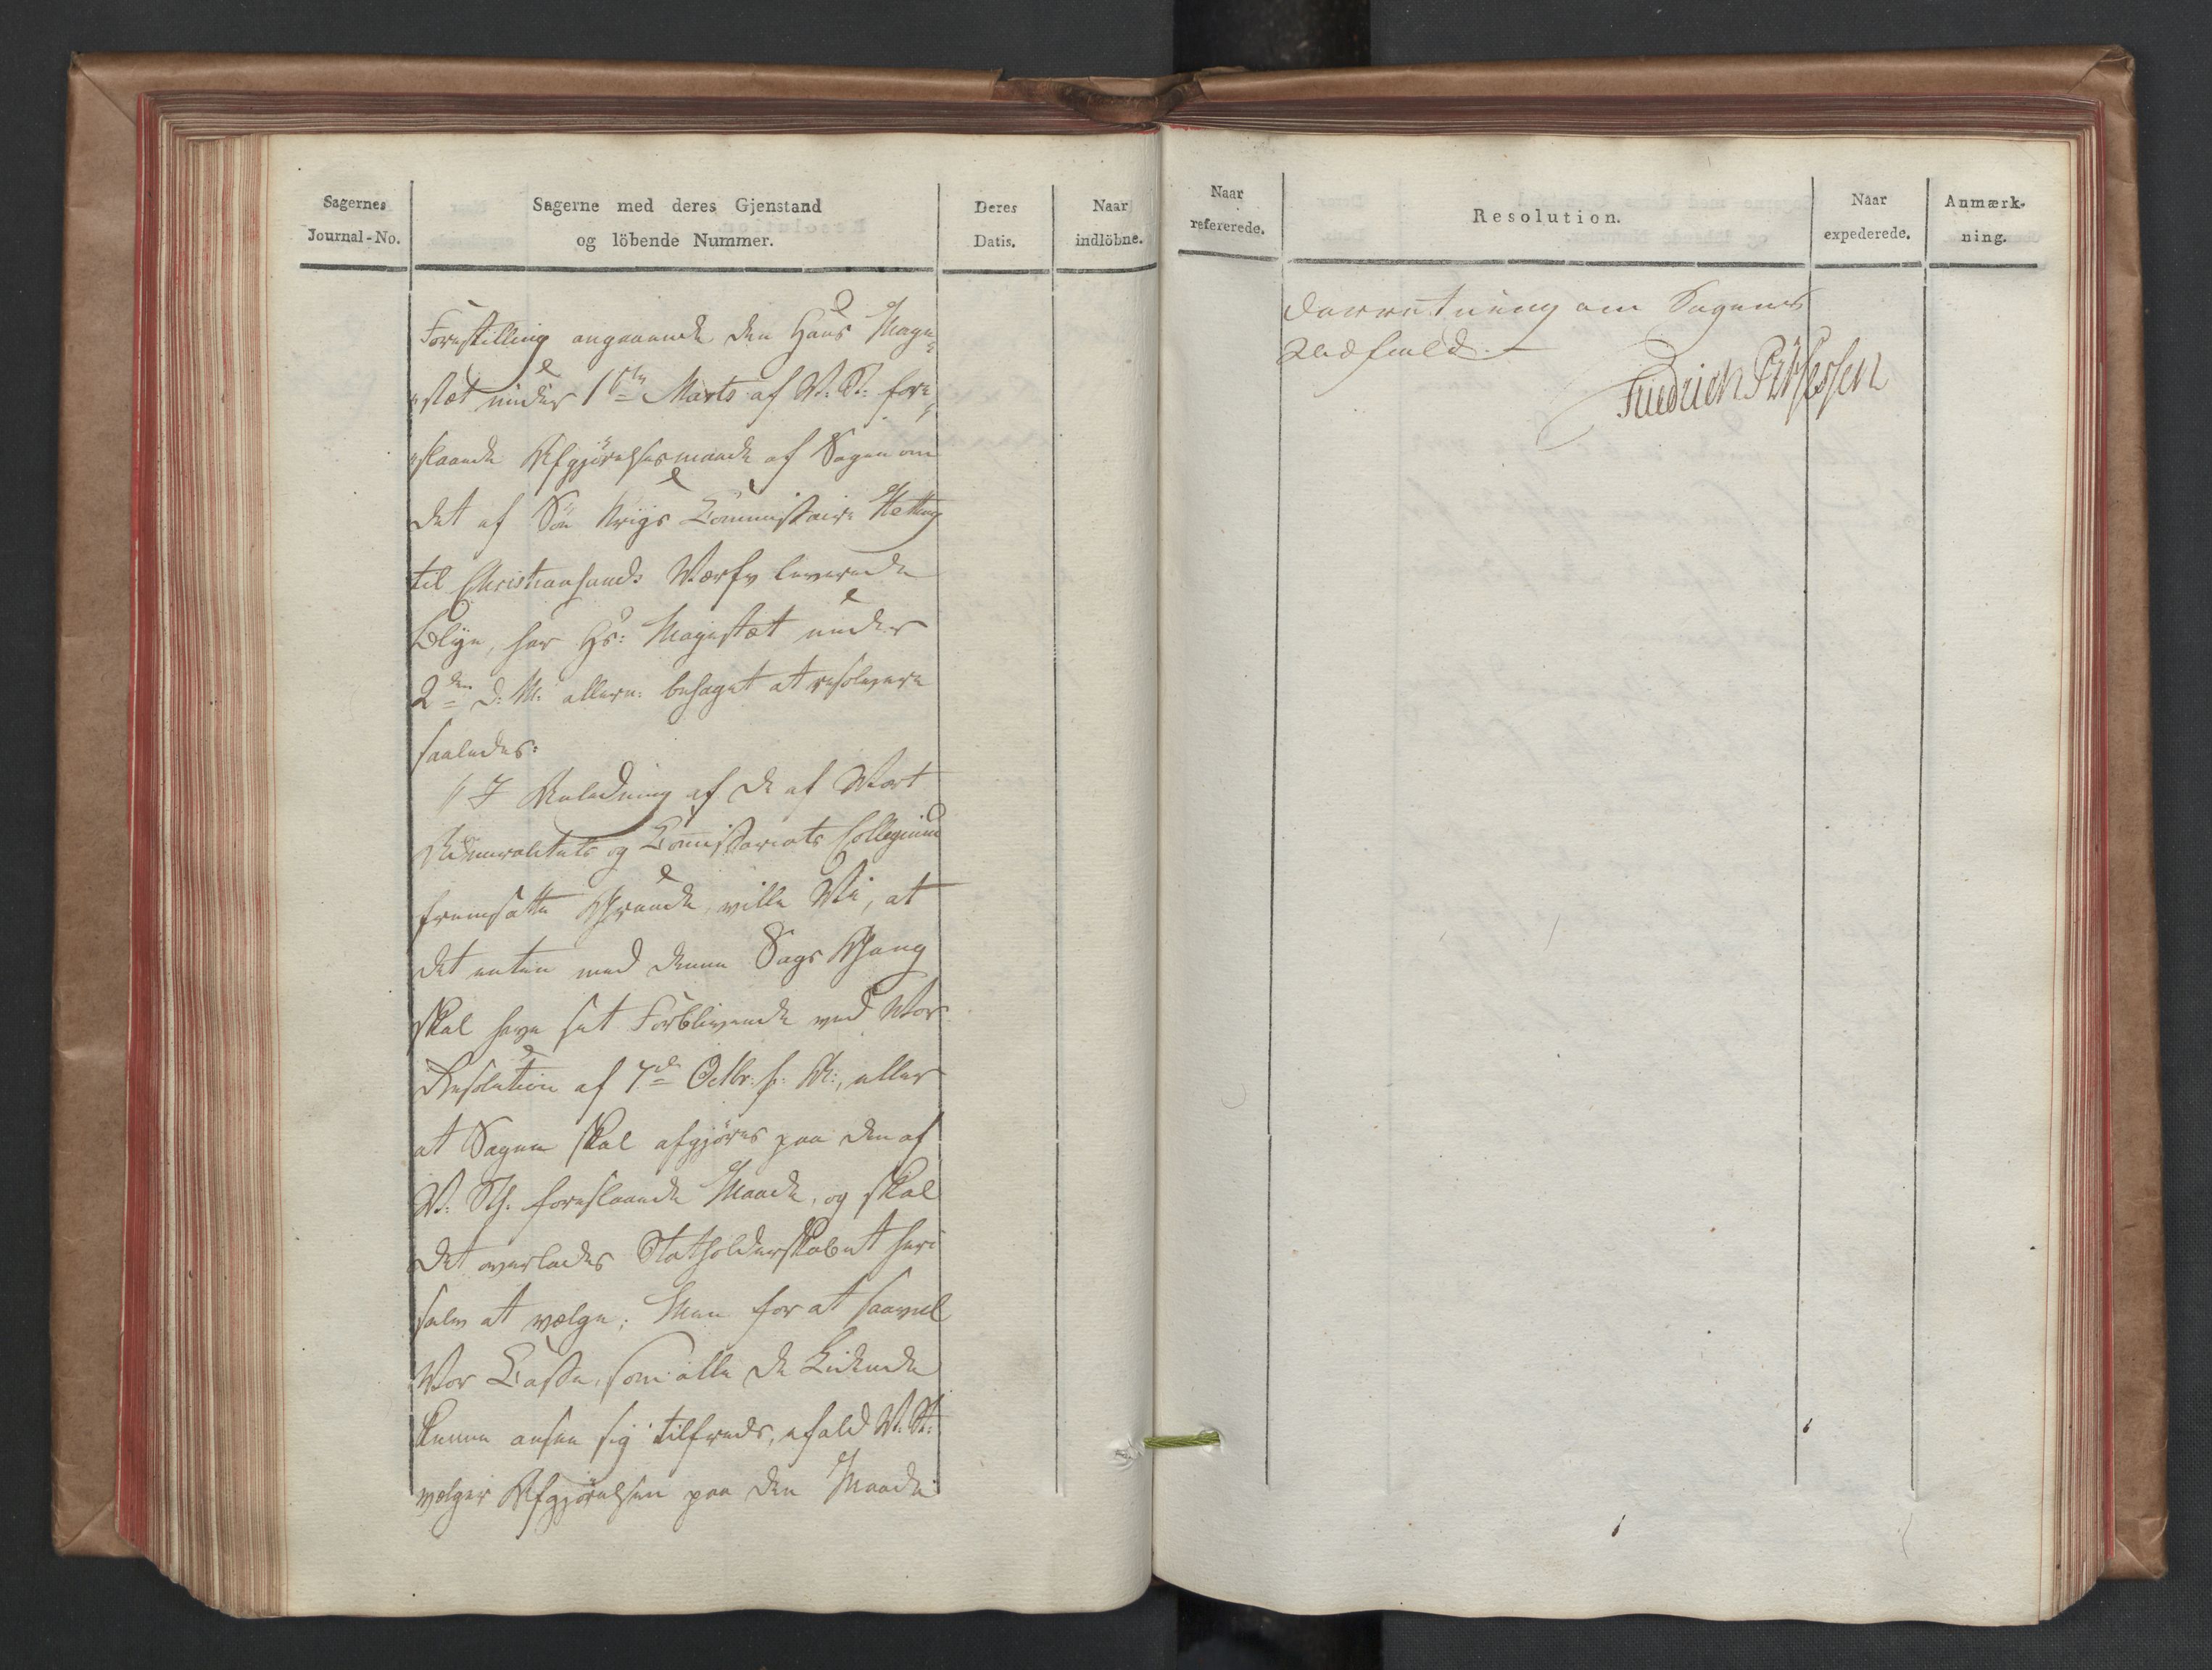 Sagernes
Journal-No.
Sagerne med deres Gjenstand
og löbende Nummer.
Deres
Datis.
Naar
indlöbne.
Forestilling angaaende den Hans Maje-
"stæt under 1ste Marts af V. St. fore-
"slaaede Afgjörelsesmaade af Sagen om
det af Söe Krigs Commissaire Hetting
til Christiansands Værfv leverede
Blye, har Hs: Majestæt under
2den d: M: allern: behaget at resolvere
saaledes:
"I Anledning af de af Vort
Admiralitets og Commissariats Collegium
fremsatte Grunde, ville Vi, at
det enten med denne Sags Gang
skal have sit Forblivende ved Vor
Resolution af 7de Octbr. f: A:, eller
at Sagen skal afgjöres paa den af
V. St. foreslaaede Maade, og skal
det overlades Statholderskabet heri
selv at vælge; Men for at saavel
Vor Casse, som alle de Lidende
kunne ansee sig tilfreds, ifald V. St.
vælger Afgjörelsen paa den Maade
Naar
refererede.
Resolution.
Naar
expederede.
Anmærk-
ning.
om Sagens
Udfald. —
Friedrich